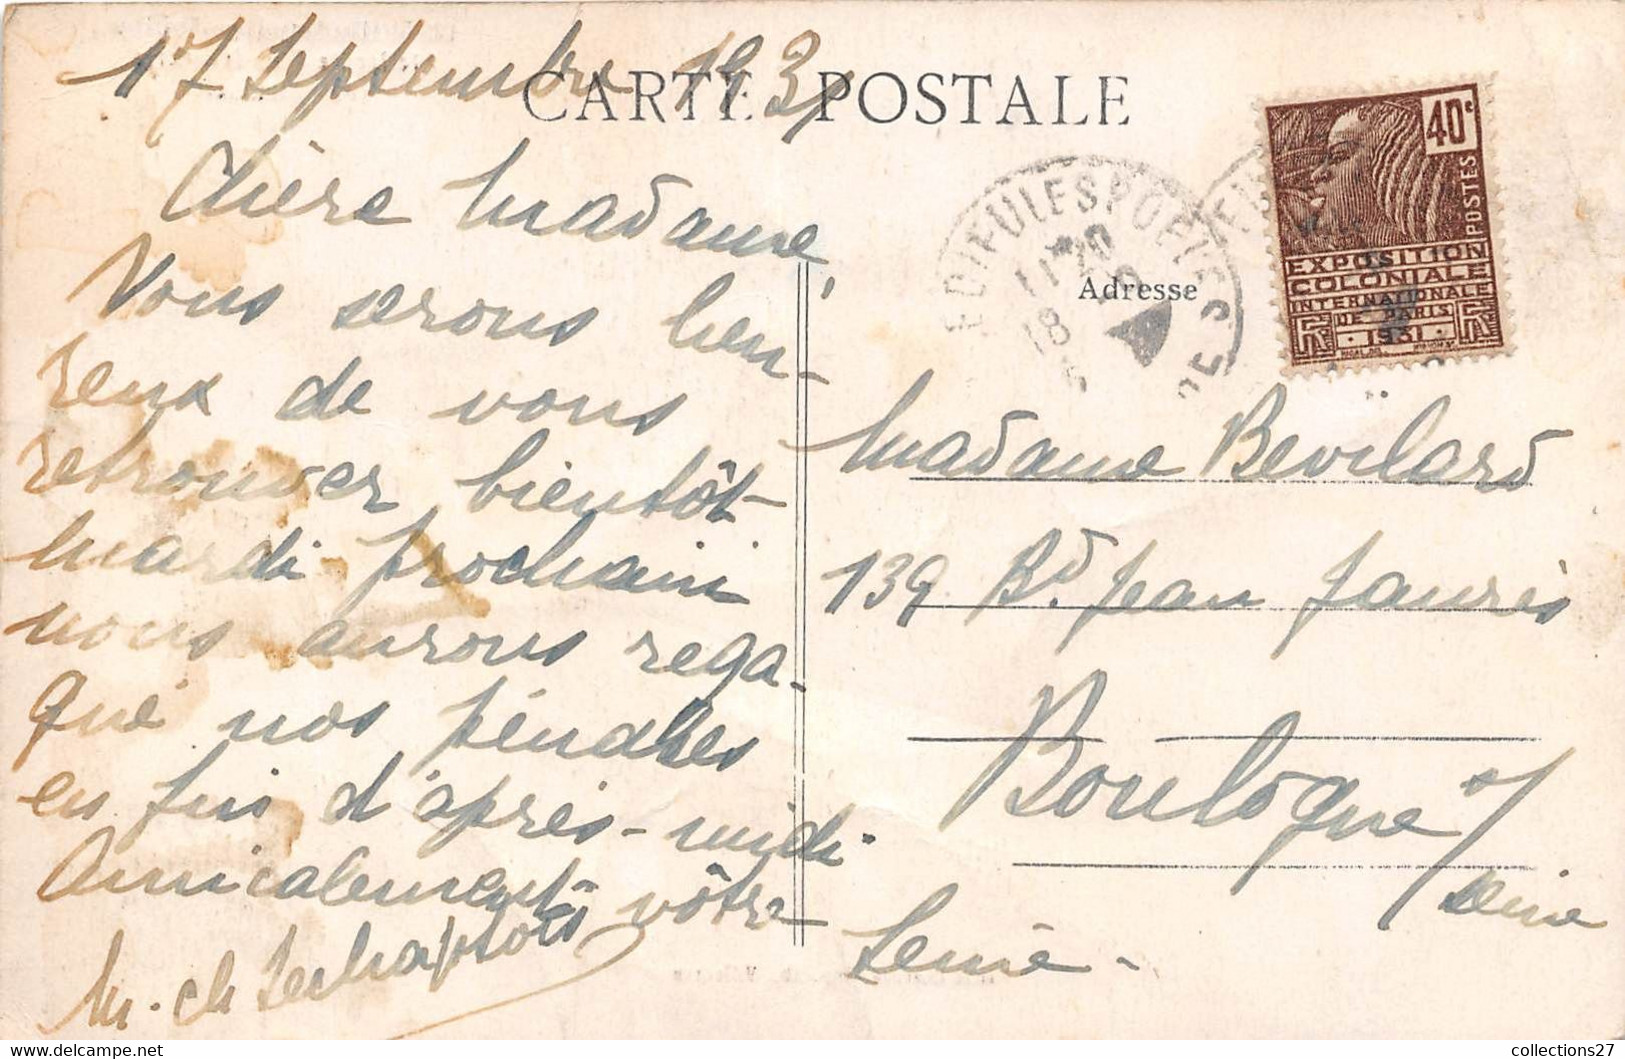 17 Septembre 1931
CARTE POSTALE
Chère Madame,
Vous serons heu-
reux de vous
retrouver bientôt-
mardi prochain
nous aurons rega-
gné nos pénates
en fin d'après-midi
Amicalement vôtre
M. ch
40c
POSTES
EXPOSITION
COLONIALE
INTERNATIONALE
DE PARIS
1931
RF RF
18
Adresse
Madame Bevilard
139 Bd. Jean Jaurès
Boulogne s/
seine
Seine -
collections27